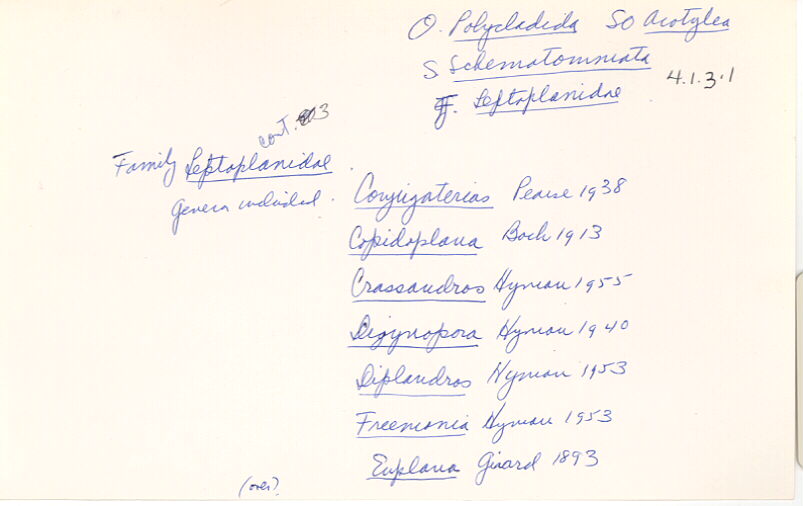 O. Polycladida SO Acotylea
S Schematommata
F. Leptoplanidae 4.1.3.1
cont. 3
Family Leptoplanidae.
Genera included.
Conjuguterus Pearse 1938
Copidoplana Bock 1913
Crassandros Hyman 1955
Digynopora Hyman 1940
Diplandros Hyman 1953
Freemania Hyman 1953
Euplana Girard 1893
(over)